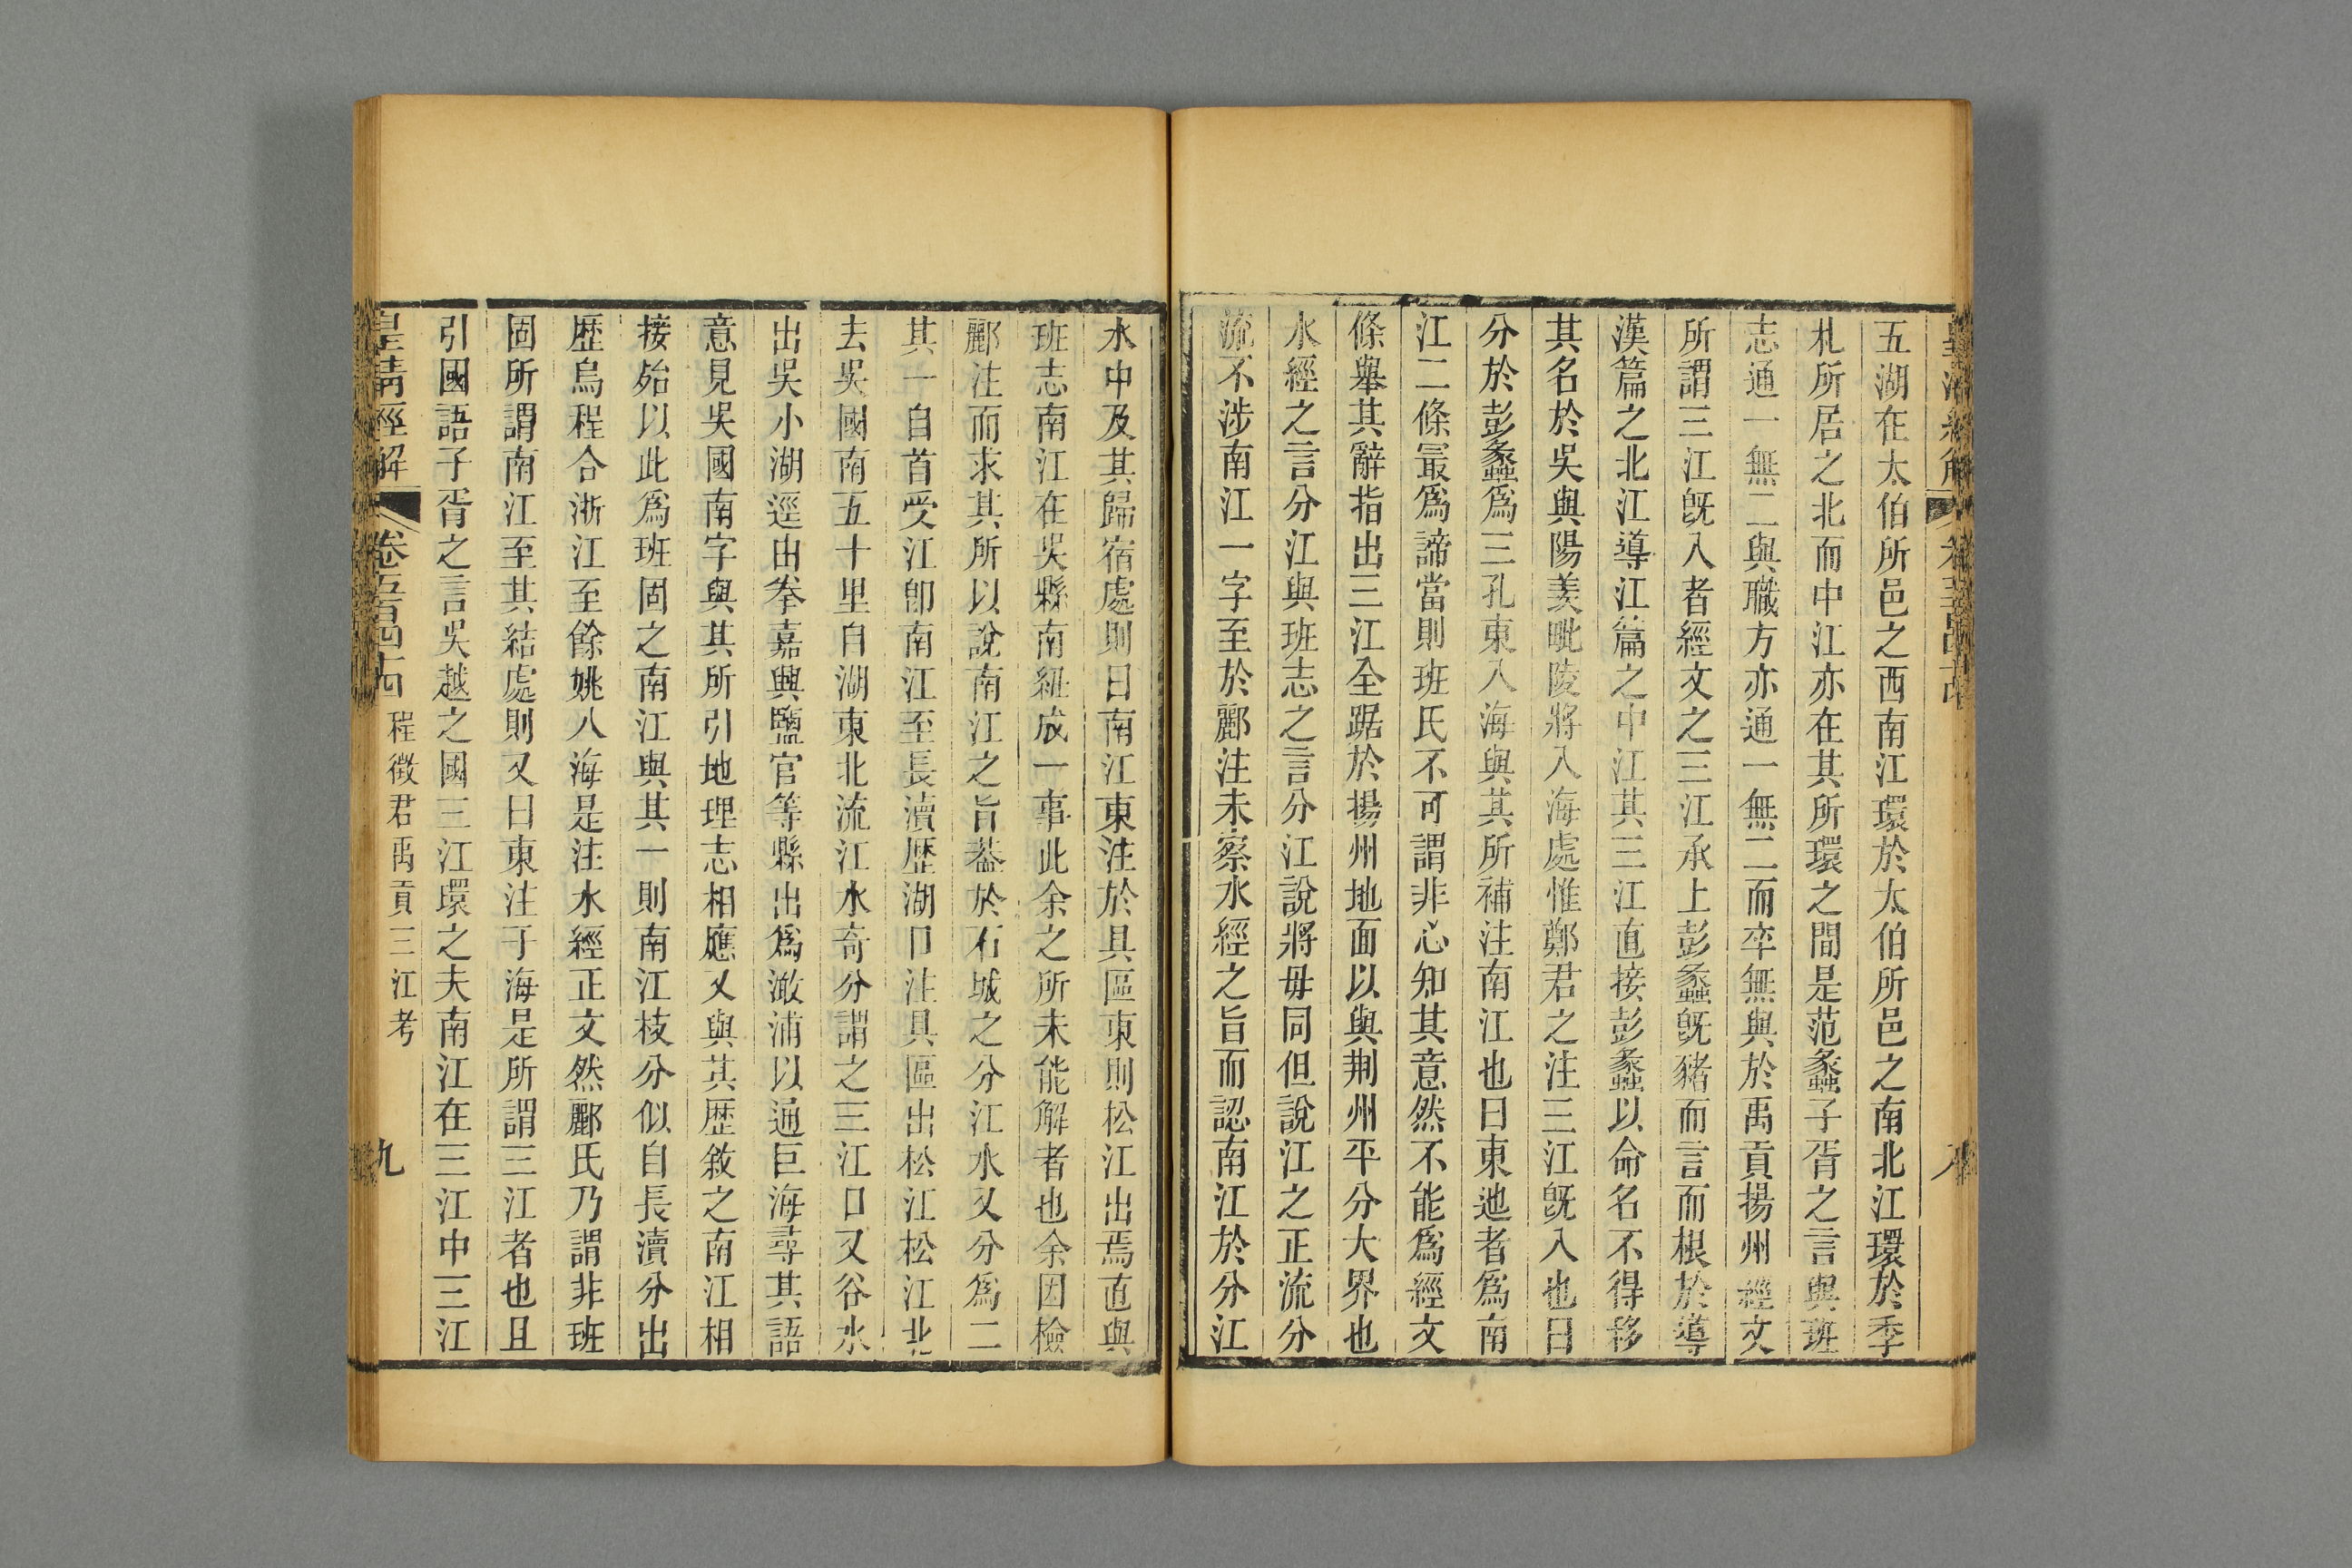 五湖在太伯所邑之西南江環於太伯所邑之南北江環於季
札所居之北而中江亦在其所環之間是范蠡子胥之言與班
志通一無二與職方亦通一無二而卒無與於禹貢揚州經文
所謂三江旣入者經文之三江承上彭蠡旣豬而言而根於導
漢篇之北江導江篇之中江其三江直接彭蠡以命名不得移
其名於吳與陽羨毗陵將入海處惟鄭君之注三江旣入也曰
分於彭蠡爲三孔東入海與其所補注南江也曰東迆者爲南
江二條㝡爲諦當則班氏不可謂非心知其意然不能爲經文
條舉其辭指出三江全踞於揚州地面以與荆州平分大界也
水經之言分江與班志之言分江說將毋同但說江之正流分
流不涉南江一字至於酈注未察水經之旨而認南江於分江
水中及其歸宿處則曰南江東注於具區東則松江出焉直與
班志南江在吳縣南紐成一事此余之所未能解者也余因檢
酈注而求其所以說南江之旨葢於石城之分江水又分爲二
其一自首受江卽南江至長瀆歷湖口注具區出松江松江北
去吳國南五十里自湖東北流江水奇分謂之三江口又谷水
出吳小湖逕由拳嘉興鹽官等縣出爲澉浦以通巨海尋其語
意見吳國南字與其所引地理志相應又與其歷敘之南江相
接殆以此爲班固之南江與其一則南江枝分似自長瀆分出
歷烏程合浙江至餘姚入海是注水經正文然酈氏乃謂非班
固所謂南江至其結處則又曰東注于海是所謂三江者也且
引國語子胥之言吳越之國三江環之夫南江在三江中三江
皇清經解
卷五百四十四
程徵君禹貢三江考
九